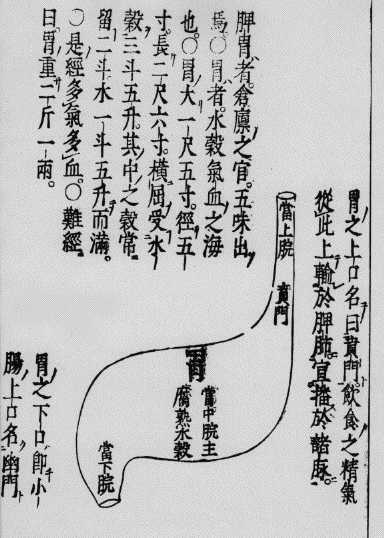 胃之上口名曰賁門飲食之精氣
從此上輸於脾肺宣播於諸脉。
脾胃者。倉廩之官。五味出
焉。○胃者。水穀氣血之海
也。○胃大一尺五寸。徑五
寸。長二尺六寸。橫屈受水
穀三斗五升。其中之穀常
留二斗。水一斗五升而滿。
○是經多氣多血。○難經
曰胃重二斤一兩。
當上脘
賁門
胃
當中脘主
腐熟水穀
當下脘
胃之下口即小
腸上口名幽門